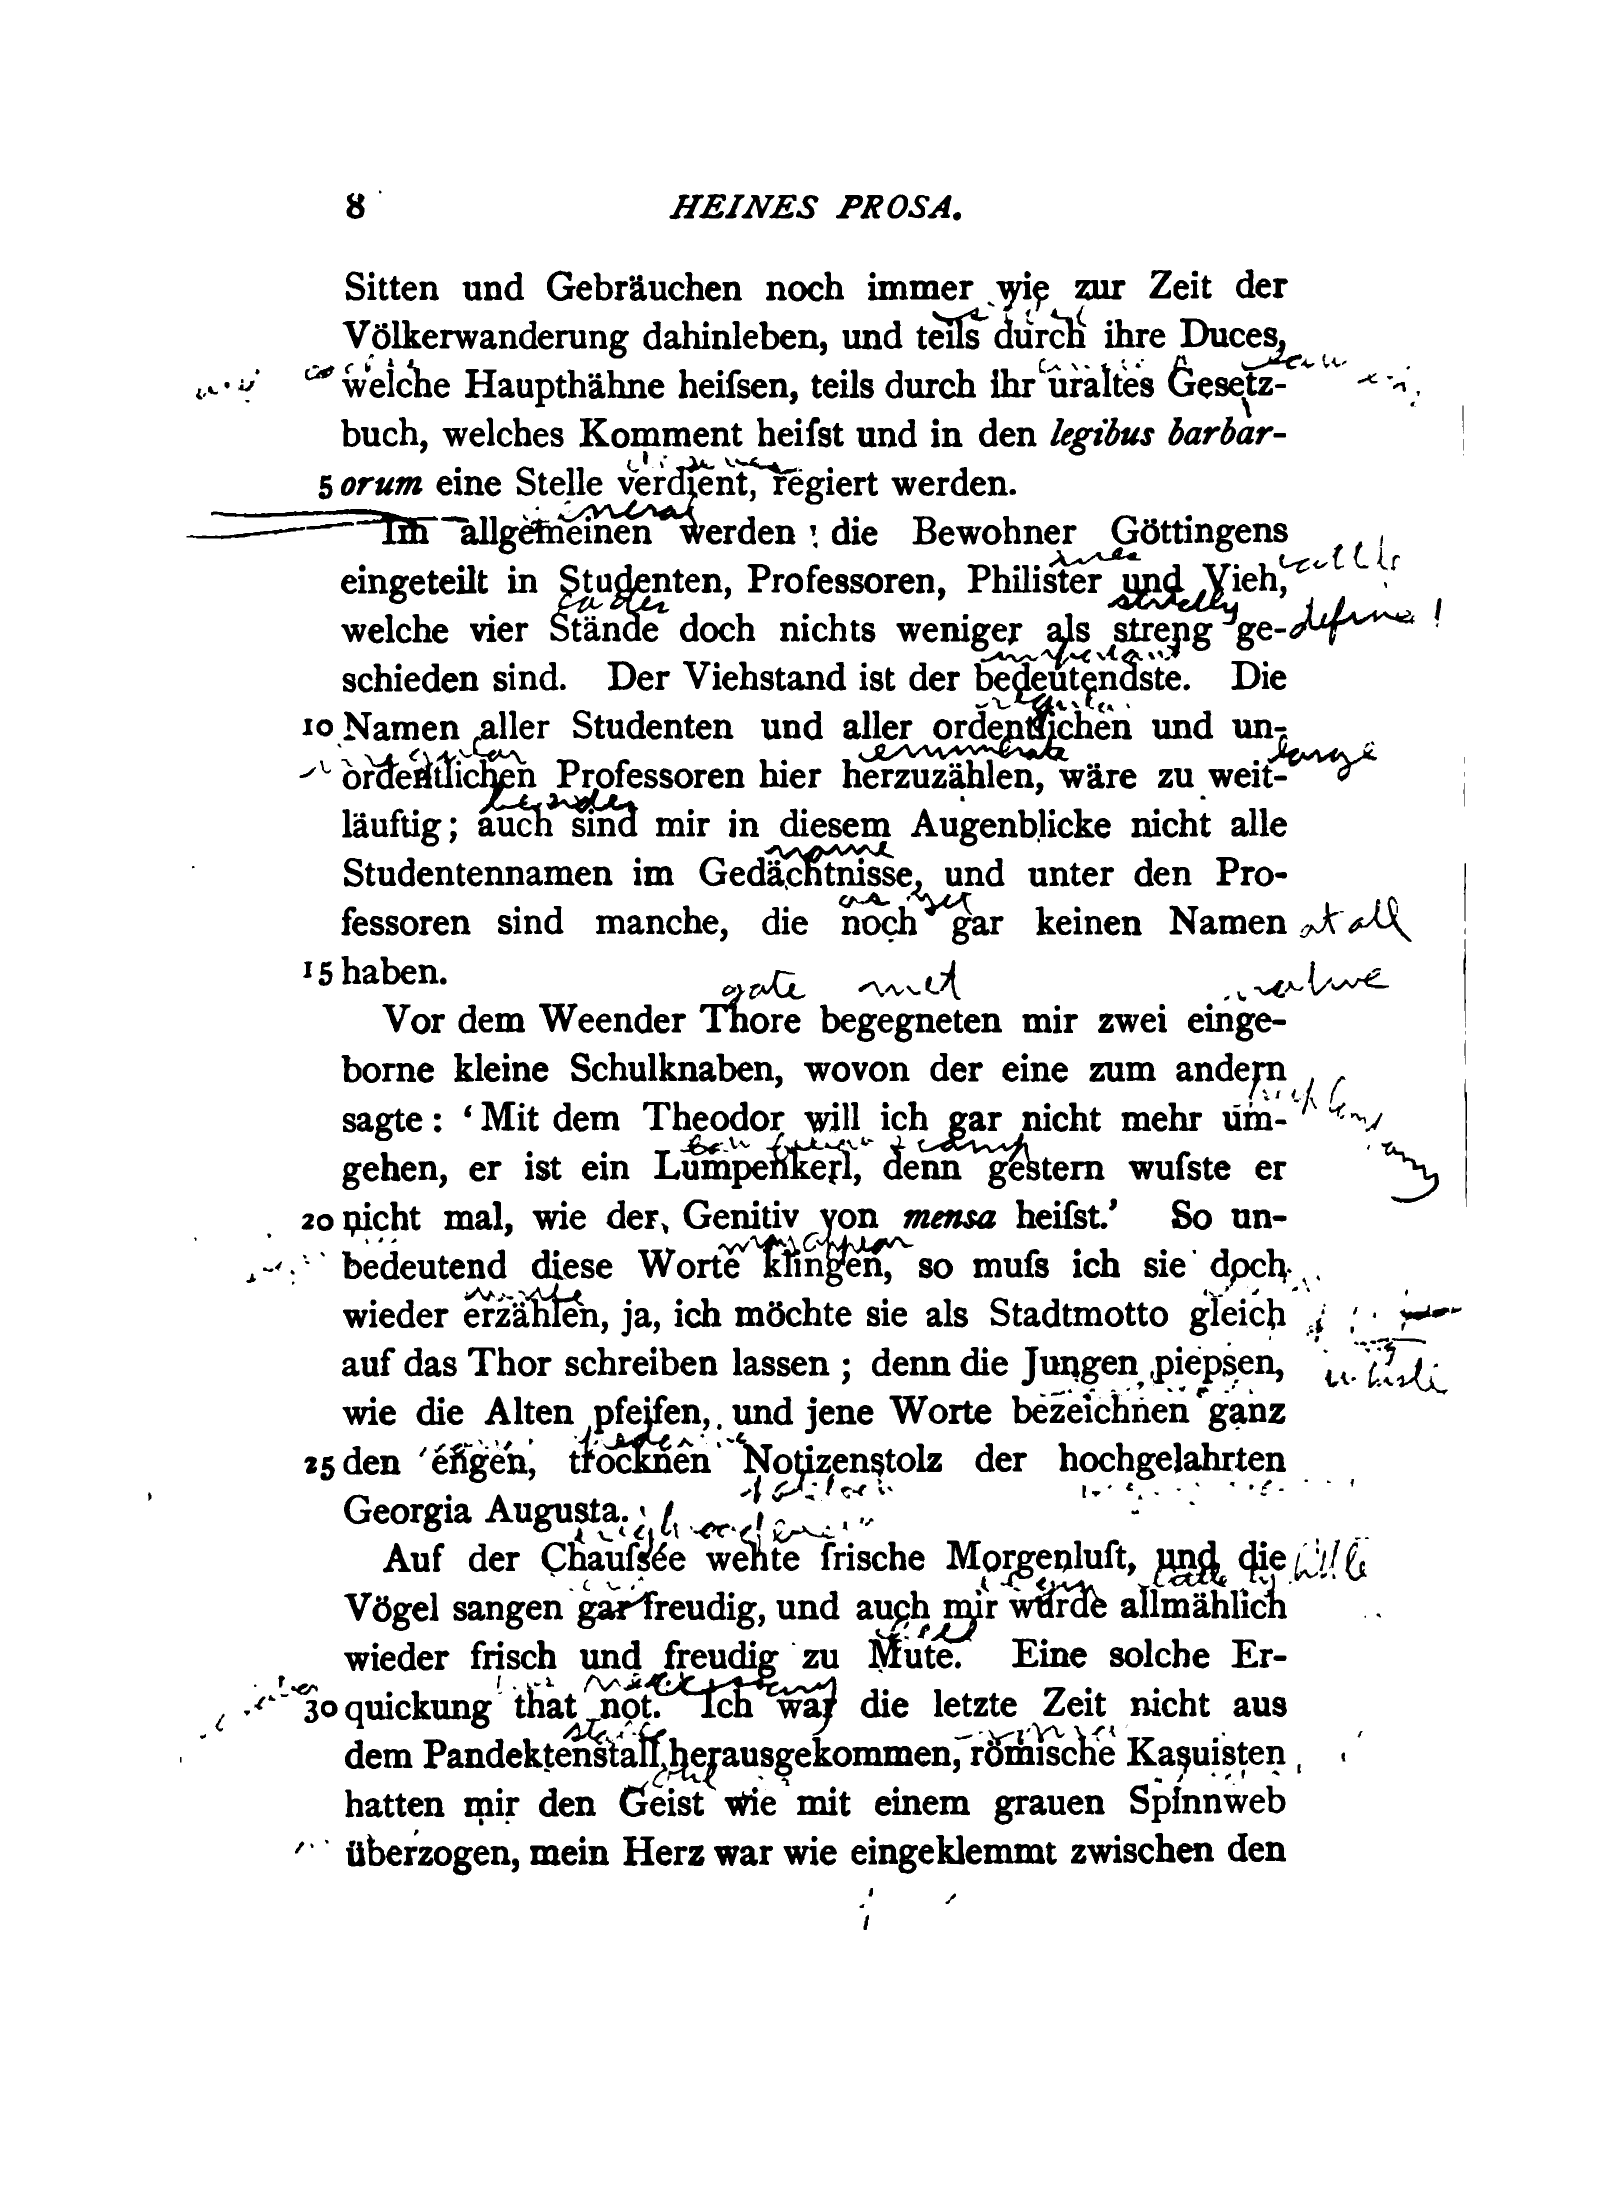 8 HEINES PROSA.
Sitten und Gebräuchen noch immer wie zur Zeit der
Völkerwanderung dahinleben, und teils durch ihre Duces,
welche Haupthähne heiſsen, teils durch ihr uraltes Gesetz-
buch, welches Komment heiſst und in den legibus barbar-
5 orum eine Stelle verdient, regiert werden.
general
Im allgemeinen werden die Bewohner Göttingens
eingeteilt in Studenten, Professoren, Philister und Vieh,
strictly
welche vier Stände doch nichts weniger als streng ge- define!
schieden sind. Der Viehstand ist der bedeutendste. Die
10 Namen aller Studenten und aller ordentlichen und un-
enumerate large
ordentlichen Professoren hier herzuzählen, wäre zu weit-
läuftig; auch sind mir in diesem Augenblicke nicht alle
Studentennamen im Gedächtnisse, und unter den Pro-
as yet
fessoren sind manche, die noch gar keinen Namen at all
15 haben.
gate met native
Vor dem Weender Thore begegneten mir zwei einge-
borne kleine Schulknaben, wovon der eine zum andern
sagte: ‘Mit dem Theodor will ich gar nicht mehr um-
gehen, er ist ein Lumpenkerl, denn gestern wuſste er
20 nicht mal, wie der Genitiv von mensa heiſst.’ So un-
bedeutend diese Worte klingen, so muſs ich sie doch
wieder erzählen, ja, ich möchte sie als Stadtmotto gleich
auf das Thor schreiben lassen; denn die Jungen piepsen,
wie die Alten pfeifen, und jene Worte bezeichnen ganz
25 den engen, trocknen Notizenstolz der hochgelahrten
Georgia Augusta.
Auf der Chauſsée wehte frische Morgenluft, und die
Vögel sangen gar freudig, und auch mir wurde allmählich
wieder frisch und freudig zu Mute. Eine solche Er-
30 quickung that not. Ich war die letzte Zeit nicht aus
dem Pandektenstall herausgekommen, römische Kasuisten
hatten mir den Geist wie mit einem grauen Spinnweb
überzogen, mein Herz war wie eingeklemmt zwischen den